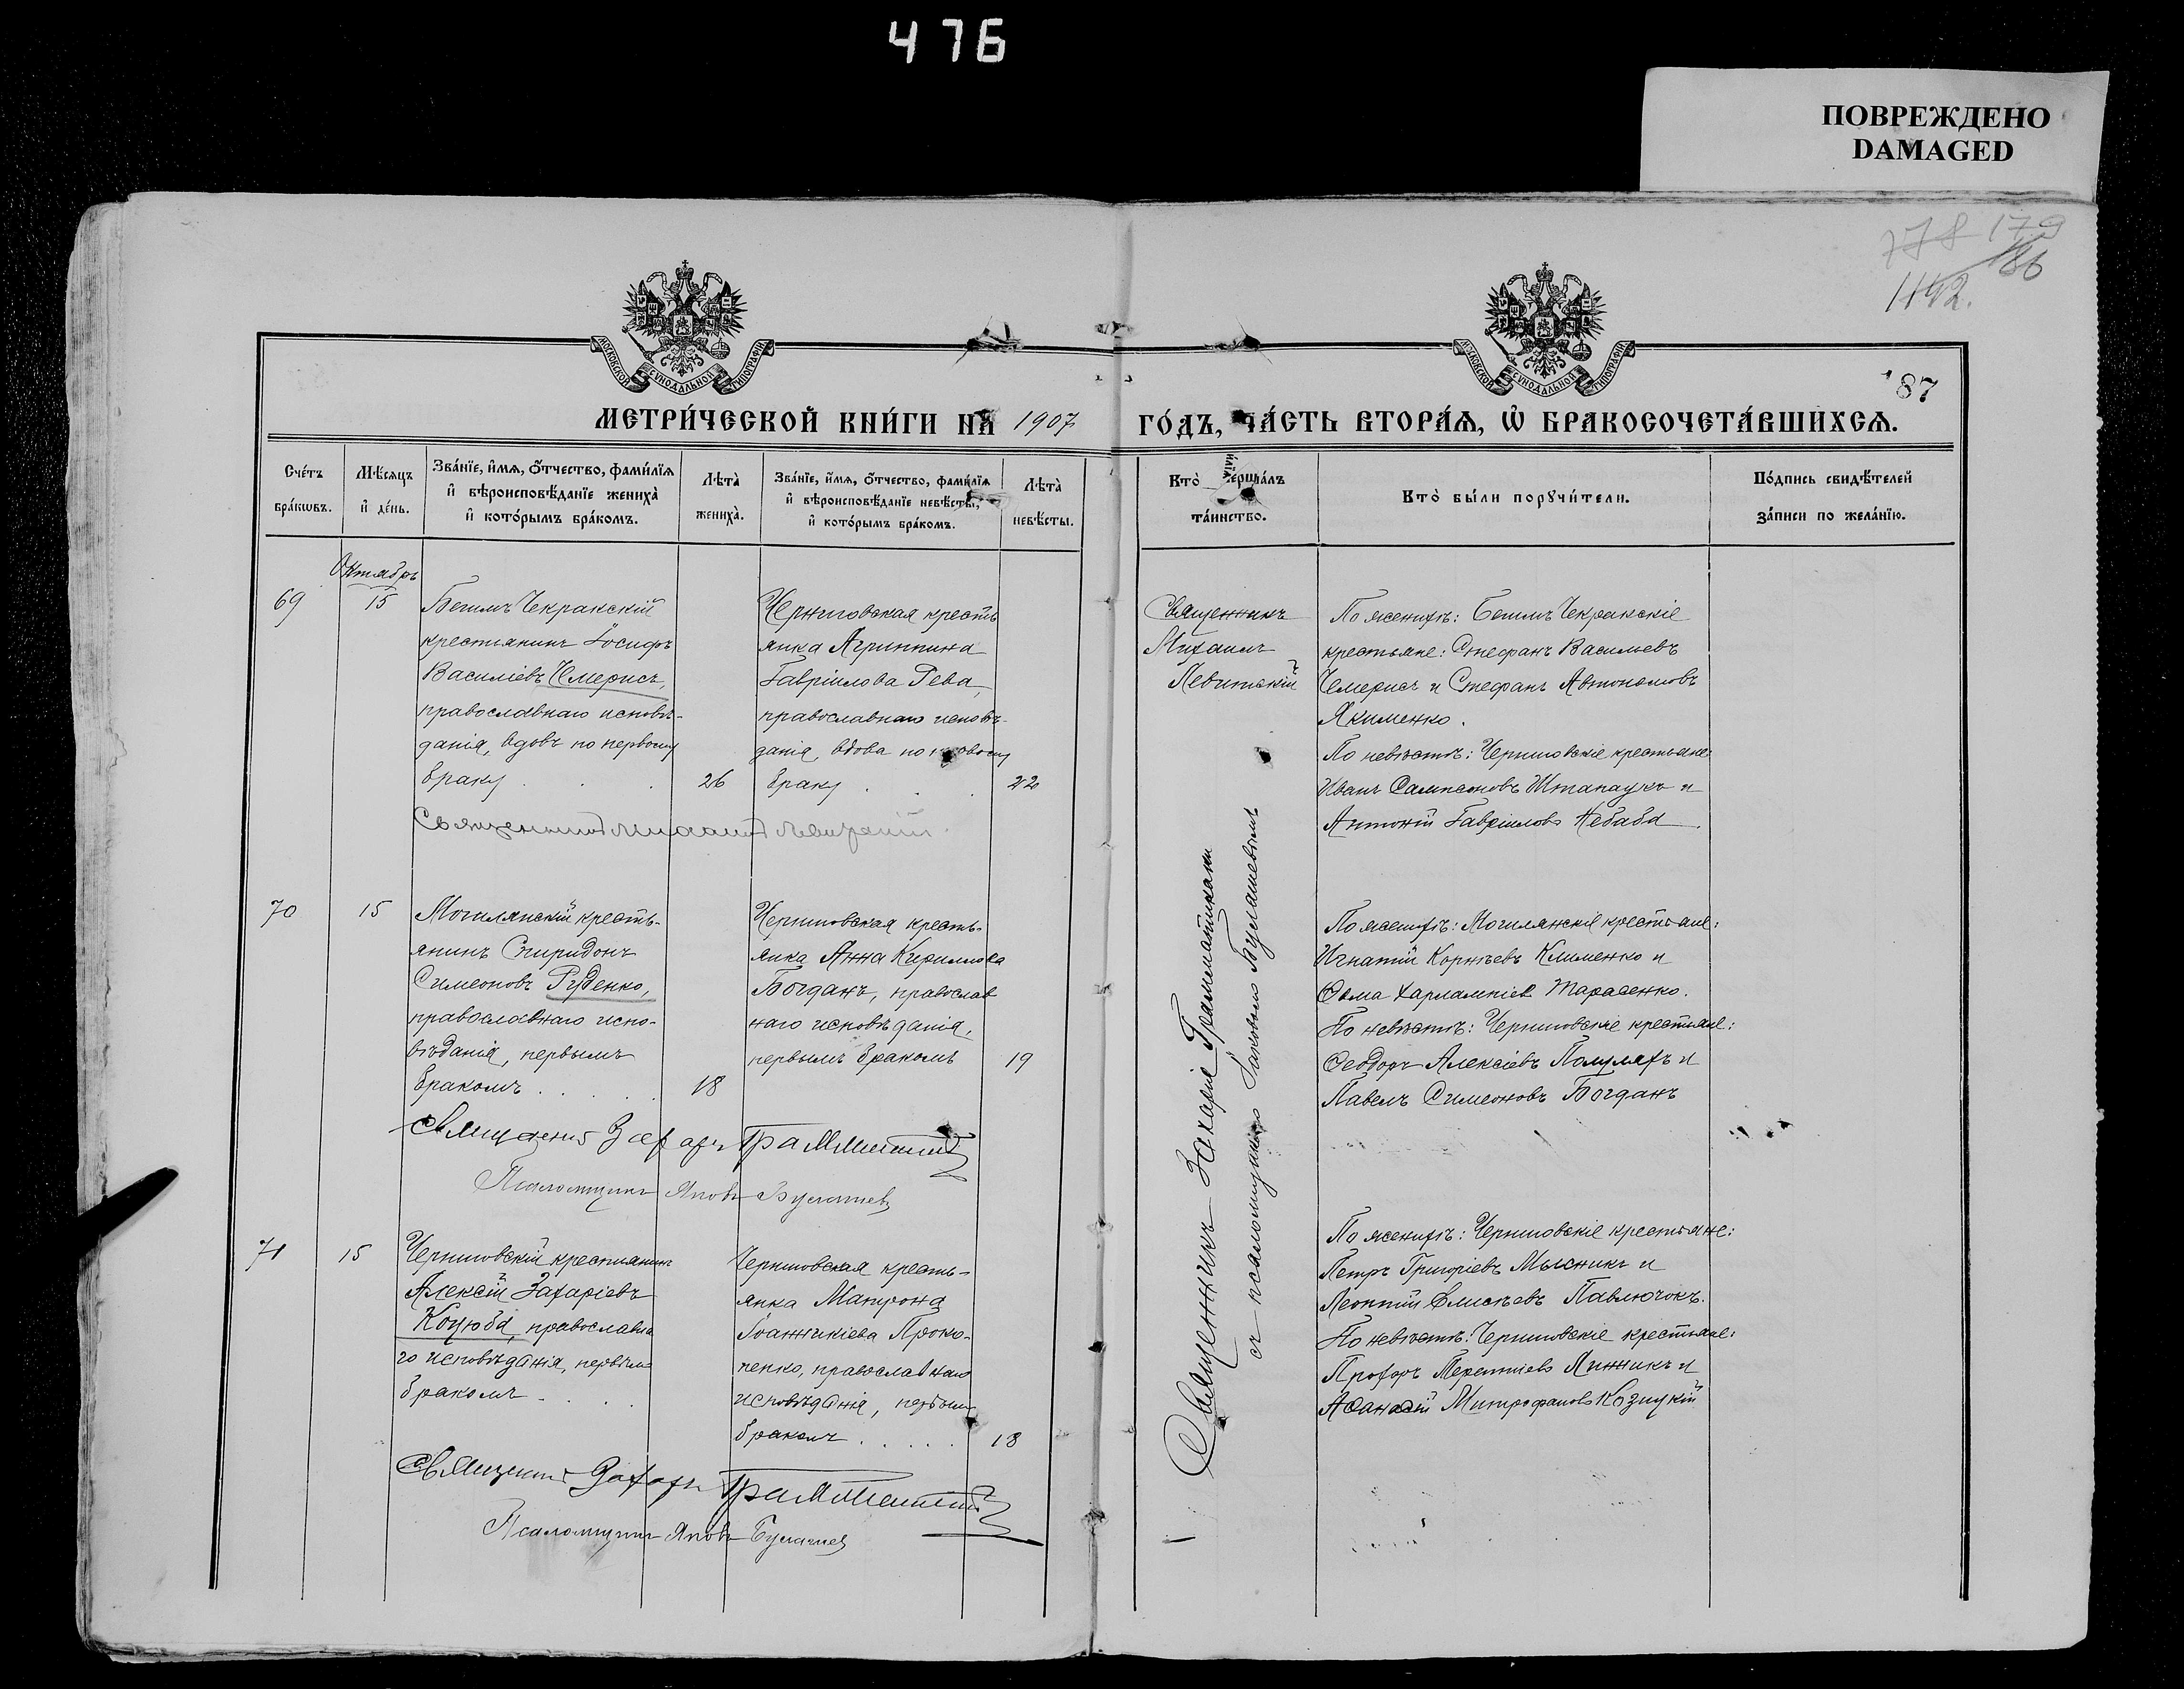 476
ПОВРЕЖДЕНО
DAMAGED
78 179
186
1142.
МОСКОВСКОЙ СѴНОДАЛЬНОЙ ТИПОГРАФІИ
МОСКОВСКОЙ СѴНОДАЛЬНОЙ ТИПОГРАФІИ
87
МЕТРИ́ЧЕСКОЙ КНИ́ГИ НА 1907 ГО́ДЪ, ЧА́СТЬ ВТОРА́Ѧ, Ѡ҆ БРАКОСОЧЕТА́ВШИХСѦ.
Сче́тъ
бра́кѡвъ.
Мѣ́сяцъ
и҆ де́нь.
Зва́нїе, и҆́мѧ, о҆́тчество, фами́лїѧ
и҆ вѣроисповѣ́данїе жениха̀
и҆ кото́рымъ бра́комъ.
Лѣта̀
жениха̀.
Зва́нїе, и҆́мѧ, о҆́тчество, фами́лїѧ
и҆ вѣроисповѣ́данїе невѣ́сты,
и҆ кото́рымъ бра́комъ.
Лѣта̀
невѣ́сты.
Кто̀ соверша́лъ
та́инство.
Кто̀ бы́ли порꙋчи́тели.
По́дпись свидѣ́телей
за́писи по жела́нїю.
Октябрь
69
15
Бегимъ Чекракскій
крестьянинъ Іосифъ
Василіевъ Чемерисъ,
православнаго исповѣ-
данія, вдовъ по первому
браку
26
Черниговская кресть
янка Агриппина
Гавріилова Рева,
православнаго исповѣ-
данія, вдова по первому
браку
22
Священникъ
Михаилъ
Левитскій
По женихѣ: Бегимъ Чекракскіе
крестьяне: Стефанъ Василіевъ
Чемерисъ и Стефанъ Автономовъ
Якименко.
По невѣстѣ: Черниговскіе крестьяне:
Иванъ Сампсоновъ Штапаукъ и
Антоній Гавріиловъ Небаба.
Священникъ Михаилъ Левитскій.
70
15
Могилянскій кресть-
янинъ Спиридонъ
Симеоновъ Руденко,
православнаго испо-
вѣданія, первымъ
бракомъ
18
Черниговская кресть-
янка Анна Кириллова
Богданъ, православ
наго исповѣданія,
первымъ бракомъ
19
По женихѣ: Могилянскіе крестьяне:
Игнатій Корнѣевъ Клименко и
Ѳома Харлампіев Тарасенко.
По невѣстѣ: Черниговскіе крестьяне:
Ѳеодоръ Алексіевъ Полуляхъ и
Павелъ Симеоновъ Богданъ
Священникъ Захарія Грамматикати
съ псаломщикомъ Іаковомъ Булашевымъ
Священ Захарія Грамматик
Псаломщикъ Яковъ Булашевъ
71
15
Черниговскій крестьянинъ
Алексій Захаріевъ
Коцюба, православна
го исповѣданія, первым
бракомъ
Черниговская кресть-
янка Матрона
Іоанникіева Проко-
пенко, православнаго
исповѣданія, первым
бракомъ
18
По женихѣ: Черниговскіе крестьяне:
Петръ Григоріевъ Мысникъ и
Леонтій Елисѣевъ Павлючокъ.
По невѣстѣ: Черниговскіе крестьяне:
Прохоръ Терентіевъ Линникъ и
Аѳанасій Митрофановъ Козицкій
Священн Захарія Грамматик
Псаломщикъ Яковъ Булашев